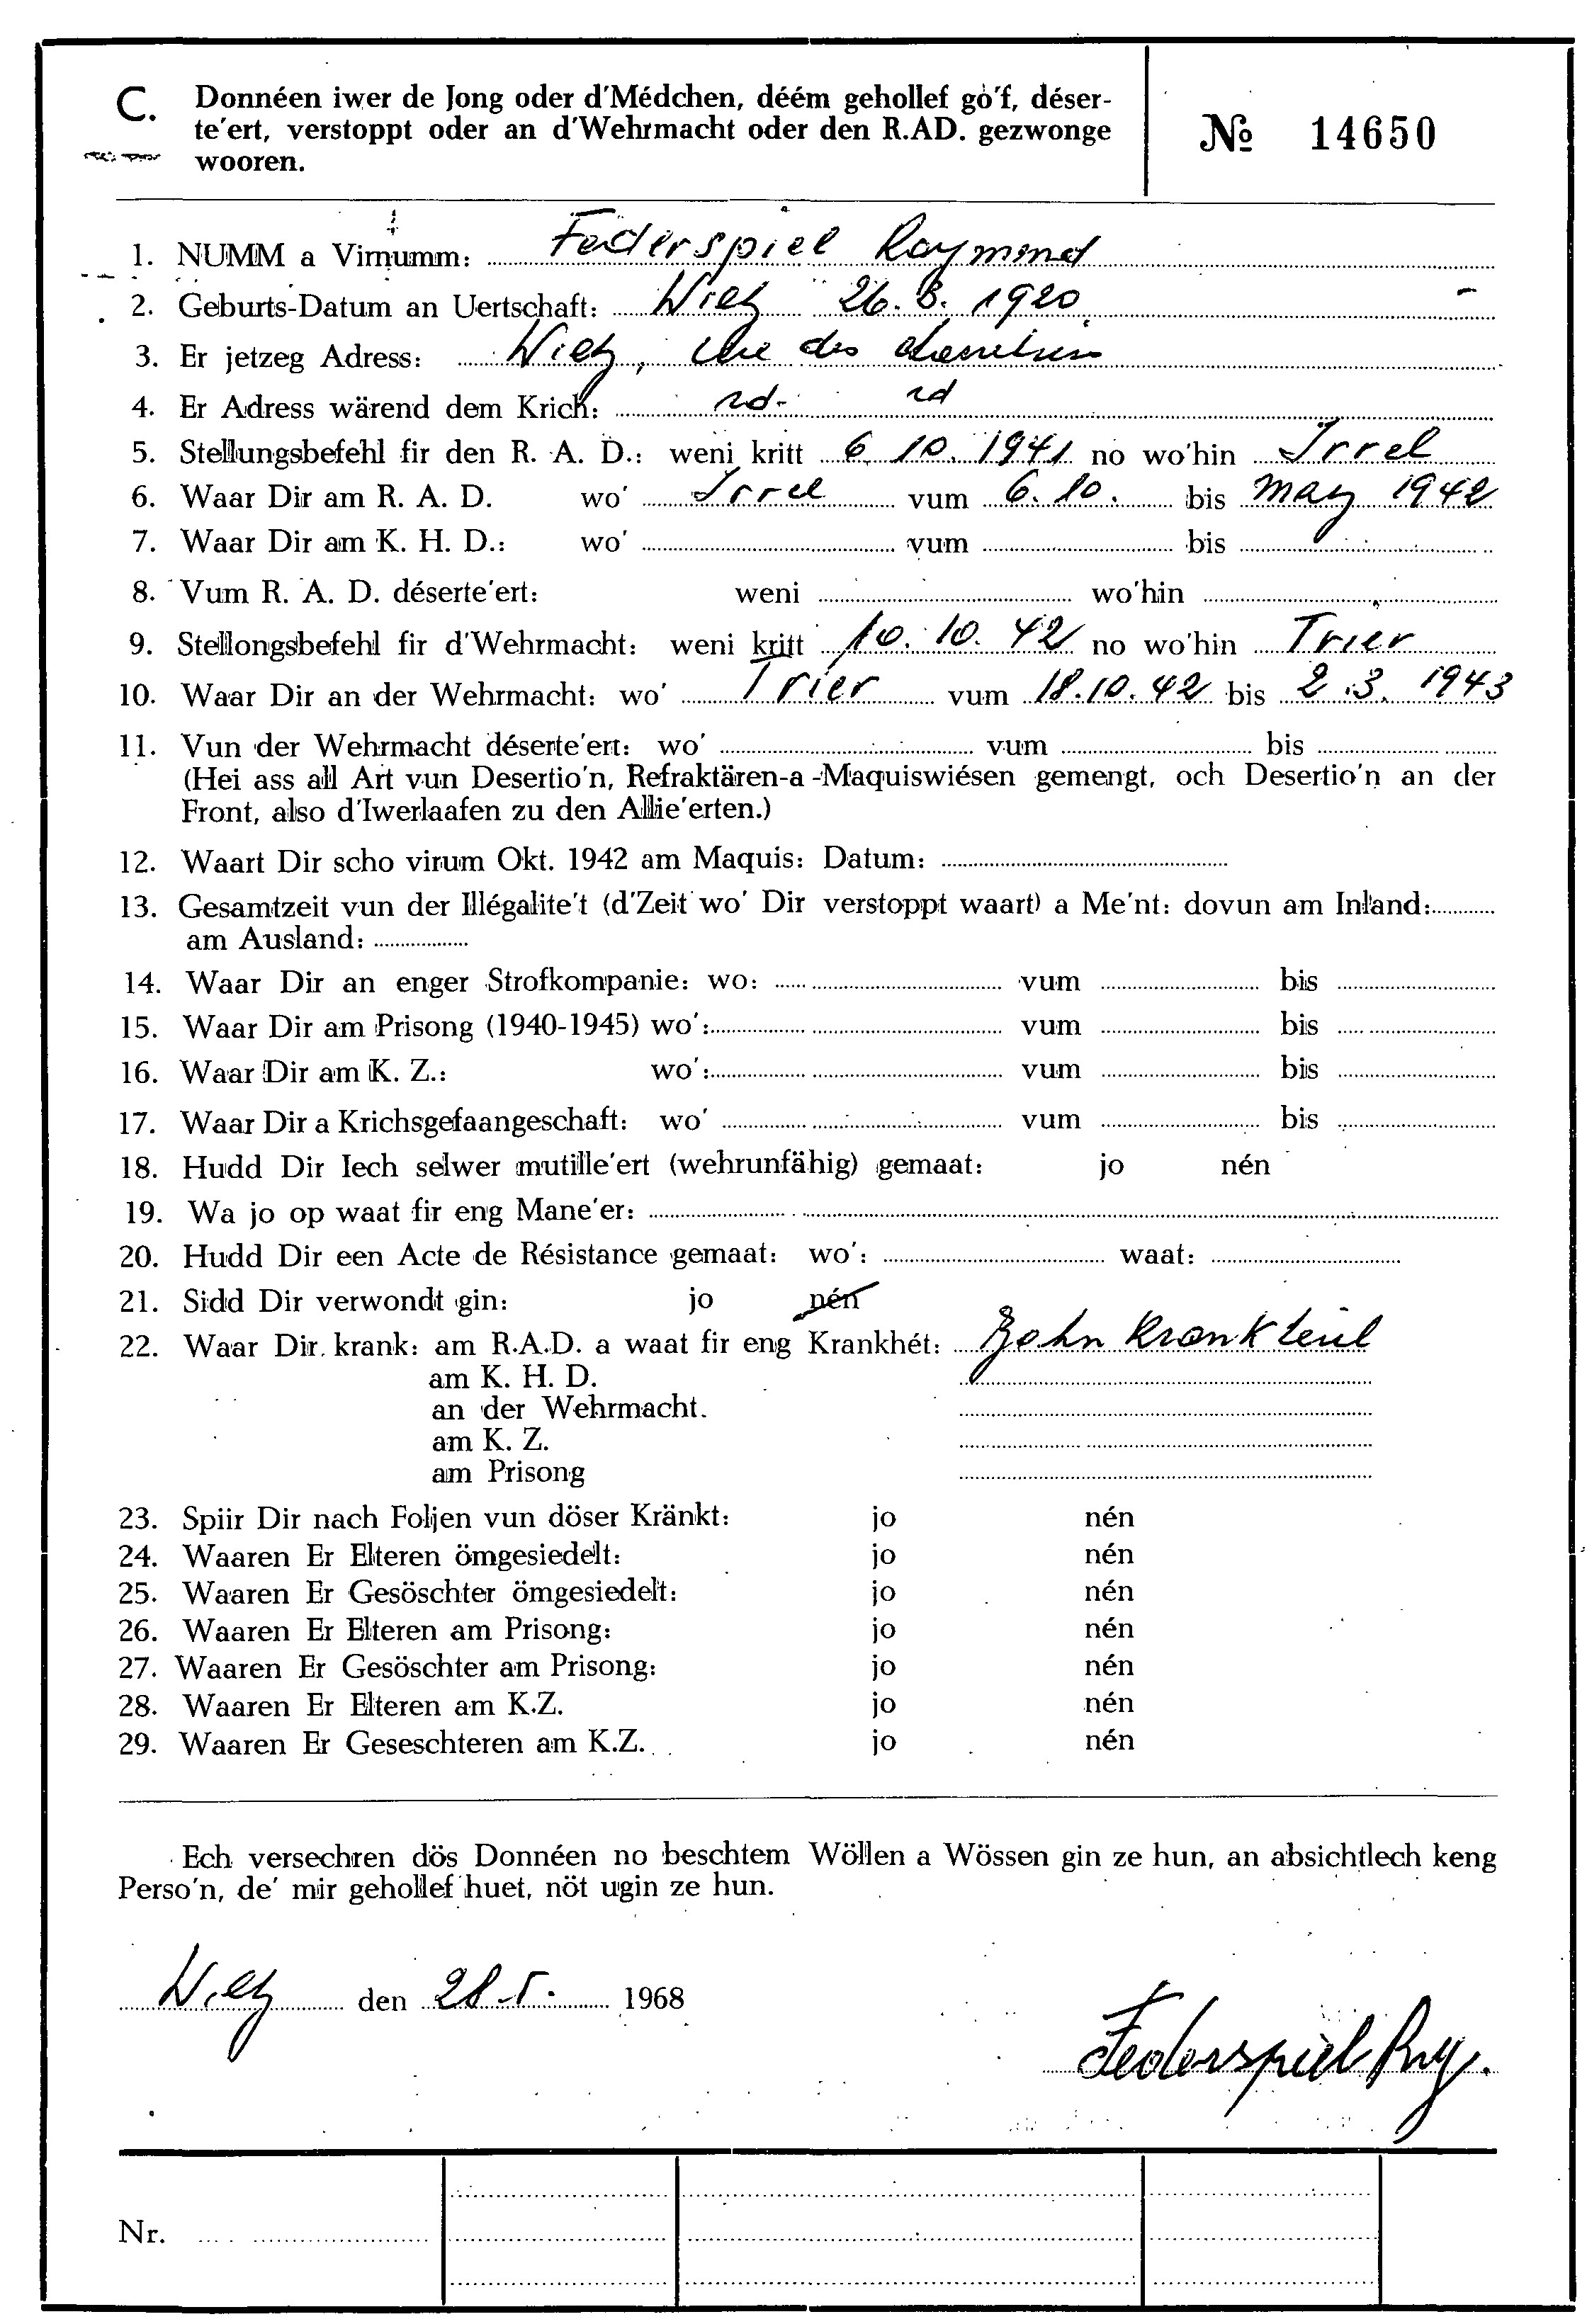 C. Donnéen iwer de Jong oder d'Médchen, déém gehollef gò'f, déser-
te'ert, verstoppt oder an d'Wehrmacht oder den R.AD. gezwonge
wooren.
№ 14650
1. NUMM a Virnumm: Federspiel Raymond
2. Geburts-Datum an Uertschaft: Wiltz 26. 8. 1920
3. Er jetzeg Adress: Wiltz, rue des
4. Er Adress wärend dem Krich: id- id
5. Stellungsbefehl fir den R. A. D.: weni kritt 6 10. 1941 no wo'hin Irrel
6. Waar Dir am R. A. D. wo' Irrel vum 6. 10. bis may 1942
7. Waar Dir am K. H. D.: wo' vum bis
8. Vum R. A. D. déserte'ert: weni wo'hin
9. Stellongsbefehl fir d'Wehrmacht: weni kritt 10. 10. 42 no wo'hin Trier
10. Waar Dir an der Wehrmacht: wo' Trier vum 18.10.42 bis 2.3. 1943
11. Vun der Wehrmacht déserte'ert: wo' vum bis
(Hei ass all Art vun Desertio'n, Refraktären-a-Maquiswiésen gemengt, och Desertio'n an der
Front, also d'Iwerlaafen zu den Allie'erten.)
12. Waart Dir scho virum Okt. 1942 am Maquis: Datum:
13. Gesamtzeit vun der Illégalite't (d'Zeit wo' Dir verstoppt waart) a Me'nt: dovun am Inland:
am Ausland:
14. Waar Dir an enger Strofkompanie: wo: vum bis
15. Waar Dir am Prisong (1940-1945) wo': vum bis
16. Waar Dir am K. Z.: wo': vum bis
17. Waar Dir a Krichsgefaangeschaft: wo' vum bis
18. Hudd Dir Iech selwer mutille'ert (wehrunfähig) gemaat: jo nén
19. Wa jo op waat fir eng Mane'er:
20. Hudd Dir een Acte de Résistance gemaat: wo': waat:
21. Sidd Dir verwondt gin: jo nén
22. Waar Dir krank: am R.A.D. a waat fir eng Krankhét: Zohn
am K. H. D.
an der Wehrmacht.
am K. Z.
am Prisong
23. Spiir Dir nach Foljen vun döser Kränkt: jo nén
24. Waaren Er Elteren ömgesiedelt: jo nén
25. Waaren Er Gesöschter ömgesiedelt: jo nén
26. Waaren Er Elteren am Prisong: jo nén
27. Waaren Er Gesöschter am Prisong: jo nén
28. Waaren Er Elteren am K.Z. jo nén
29. Waaren Er Geseschteren am K.Z. jo nén
Ech versechren dös Donnéen no beschtem Wöllen a Wössen gin ze hun, an absichtlech keng
Perso'n, de' mir gehollef huet, nöt ugin ze hun.
Wiltz den 28.5. 1968
Federspiel Ray.
Nr.